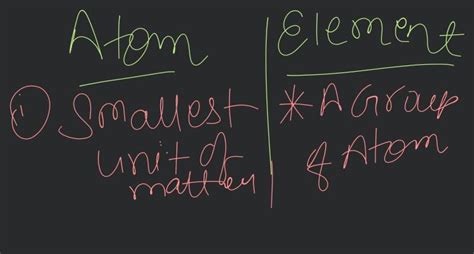 Atom
Element
i) Smallest
unit of
matter
* A Group
of Atom